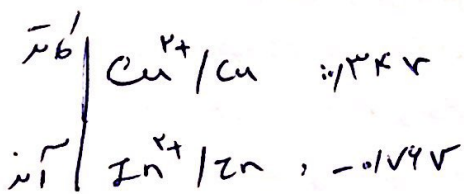 کاتد | Cu²⁺/Cu ۰/۳۴ V
آند | Zn²⁺/Zn , -۰/۷۶ V